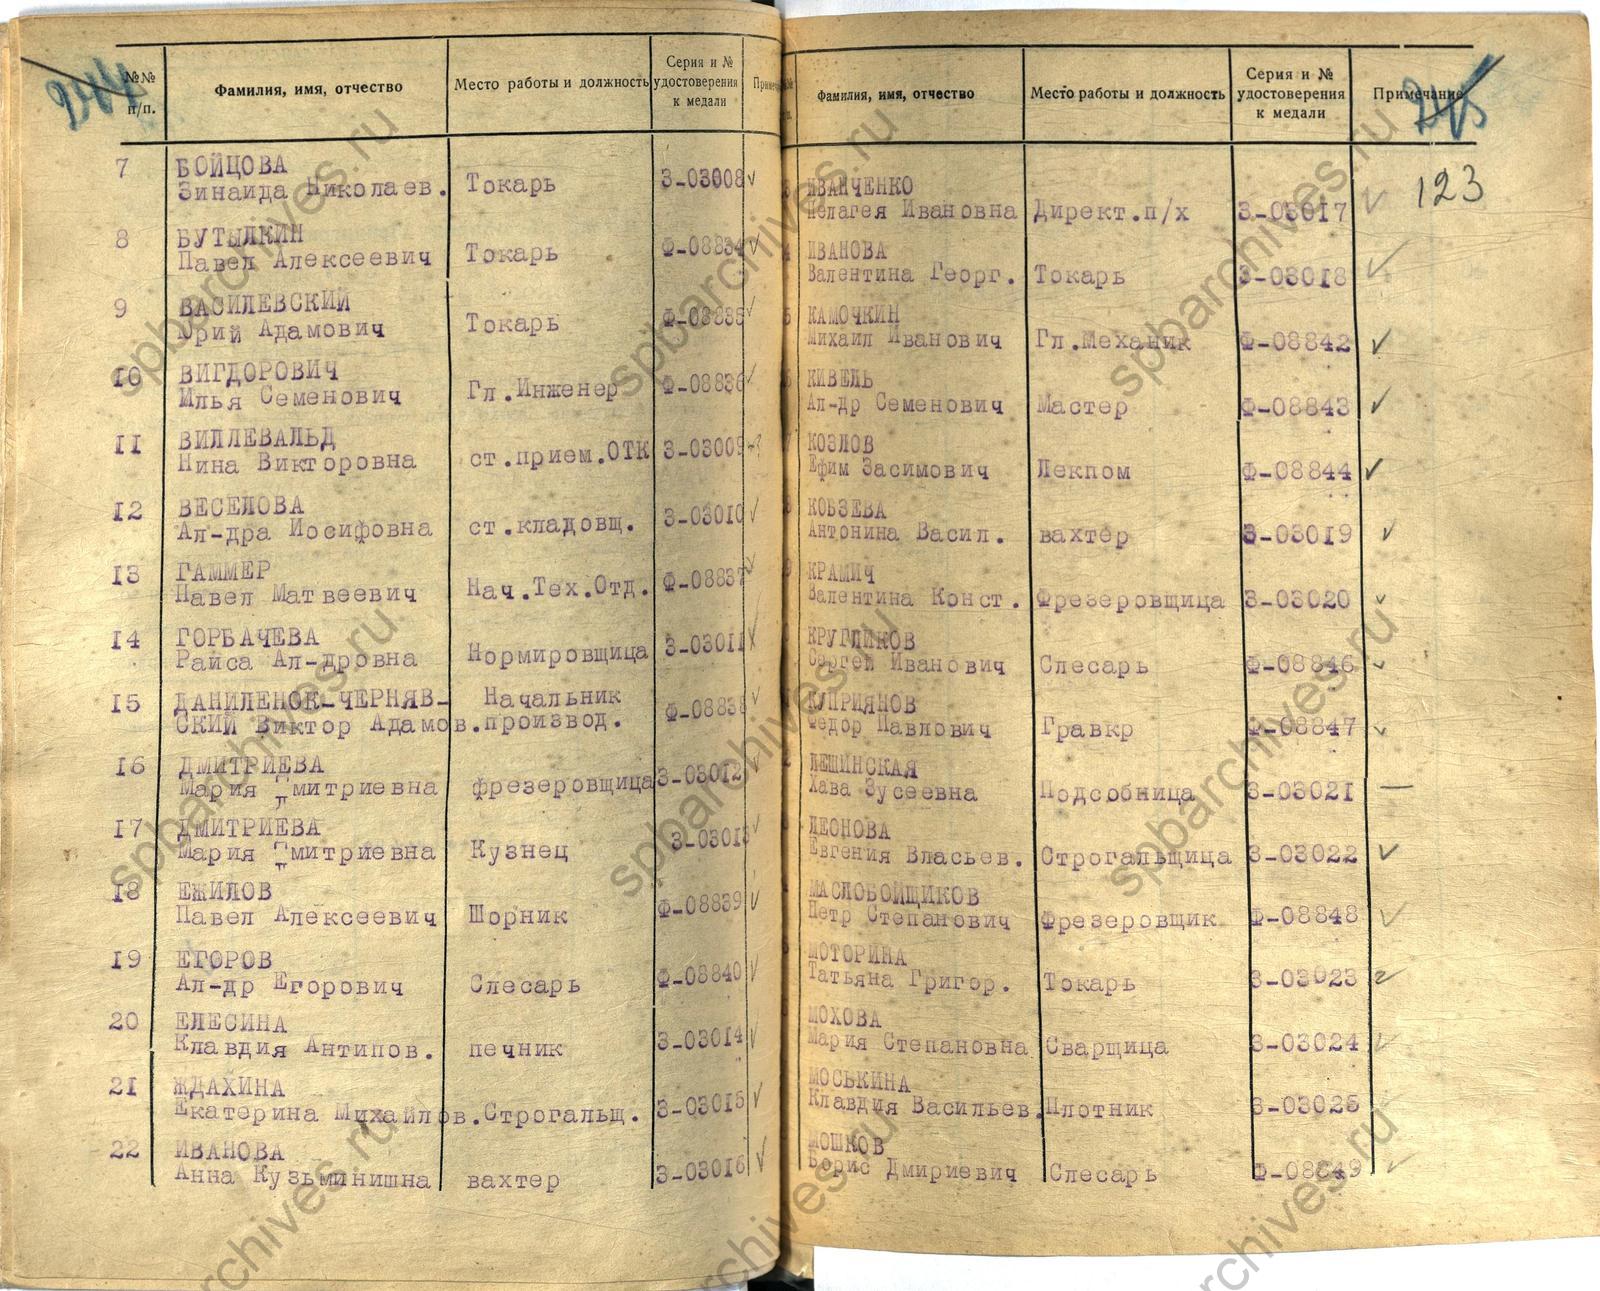 №№ п/п. Фамилия, имя, отчество Место работы и должность Серия и № удостоверения к медали
7 БОЙЦОВА
Зинаида Николаев. Токарь З-03008 ✓
8 БУТЫЛКИН
Павел Алексеевич Токарь Ф-08834 ✓
9 ВАСИЛЕВСКИЙ
Юрий Адамович Токарь Ф-08835 ✓
10 ВИГДОРОВИЧ
Илья Семенович Гл.Инженер Ф-08836 ✓
11 ВИЛЛЕВАЛЬД
Нина Викторовна ст.прием.ОТК З-03009 -?
12 ВЕСЕЛОВА
Ал-дра Иосифовна ст.кладовщ. З-03010 ✓
13 ГАММЕР
Павел Матвеевич Нач.Тех.Отд. Ф-08837 ✓
14 ГОРБАЧЕВА
Раиса Ал-дровна Нормировщица З-03011 ✓
15 ДАНИЛЕНОК-ЧЕРНЯВ- Начальник
СКИЙ Виктор Адамов. производ. Ф-08838 ✓
16 ДМИТРИЕВА
Мария Дмитриевна фрезеровщица З-03012 ✓
17 ДМИТРИЕВА
Мария Дмитриевна Кузнец З-03013 ✓
18 ЕЖИЛОВ
Павел Алексеевич Шорник Ф-08839 ✓
19 ЕГОРОВ
Ал-др Егорович Слесарь Ф-08840 ✓
20 ЕЛЕСИНА
Клавдия Антипов. печник З-03014 ✓
21 ЖДАХИНА
Екатерина Михайлов. Строгальщ. З-03015 ✓
22 ИВАНОВА
Анна Кузьминишна вахтер З-03016 ✓
Фамилия, имя, отчество Место работы и должность Серия и № удостоверения к медали Примечание
123
ИВАНЧЕНКО
Пелагея Ивановна Директ.п/х З-03017 ✓
ИВАНОВА
Валентина Георг. Токарь З-03018 ✓
КАМОЧКИН
Михаил Иванович Гл.Механик Ф-08842 ✓
КИВЕЛЬ
Ал-др Семенович Мастер Ф-08843 ✓
КОЗЛОВ
Ефим Засимович Лекпом Ф-08844 ✓
КОБЗЕВА
Антонина Васил. вахтер З-03019 ✓
КРАМИЧ
Валентина Конст. Фрезеровщица З-03020 ✓
КРУГЛИКОВ
Сергей Иванович Слесарь Ф-08846 ✓
КУПРИЯНОВ
Федор Павлович Гравкр Ф-08847 ✓
ЛЕШИНСКАЯ
Хава Зусеевна Подсобница З-03021 —
ЛЕОНОВА
Евгения Власьев. Строгальщица З-03022 ✓
МАСЛОБОЙЩИКОВ
Петр Степанович Фрезеровщик Ф-08848 ✓
МОТОРИНА
Татьяна Григор. Токарь З-03023 ✓
МОХОВА
Мария Степановна Сварщица З-03024 ✓
МОСЬКИНА
Клавдия Васильев. Плотник З-03025
МОШКОВ
Борис Дмириевич Слесарь Ф-08849 ✓
spbarchives.ru